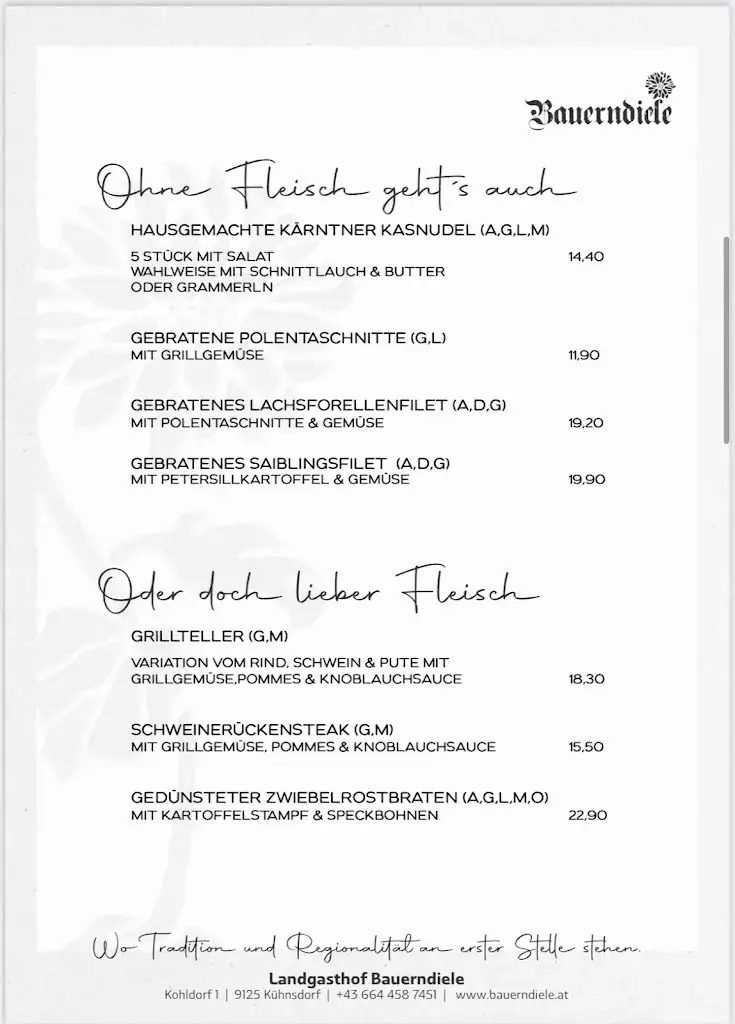 Bauerndiele
Ohne Fleisch geht's auch
HAUSGEMACHTE KÄRNTNER KASNUDEL (A,G,L,M)
5 STÜCK MIT SALAT 14,40
WAHLWEISE MIT SCHNITTLAUCH & BUTTER
ODER GRAMMERLN
GEBRATENE POLENTASCHNITTE (G,L)
MIT GRILLGEMÜSE 11,90
GEBRATENES LACHSFORELLENFILET (A,D,G)
MIT POLENTASCHNITTE & GEMÜSE 19,20
GEBRATENES SAIBLINGSFILET (A,D,G)
MIT PETERSILLKARTOFFEL & GEMÜSE 19,90
Oder doch lieber Fleisch
GRILLTELLER (G,M)
VARIATION VOM RIND, SCHWEIN & PUTE MIT
GRILLGEMÜSE,POMMES & KNOBLAUCHSAUCE 18,30
SCHWEINERÜCKENSTEAK (G,M)
MIT GRILLGEMÜSE, POMMES & KNOBLAUCHSAUCE 15,50
GEDÜNSTETER ZWIEBELROSTBRATEN (A,G,L,M,O)
MIT KARTOFFELSTAMPF & SPECKBOHNEN 22,90
Wo Tradition und Regionalität an erster Stelle stehen.
Landgasthof Bauerndiele
Kohldorf 1 | 9125 Kühnsdorf | +43 664 458 7451 | www.bauerndiele.at